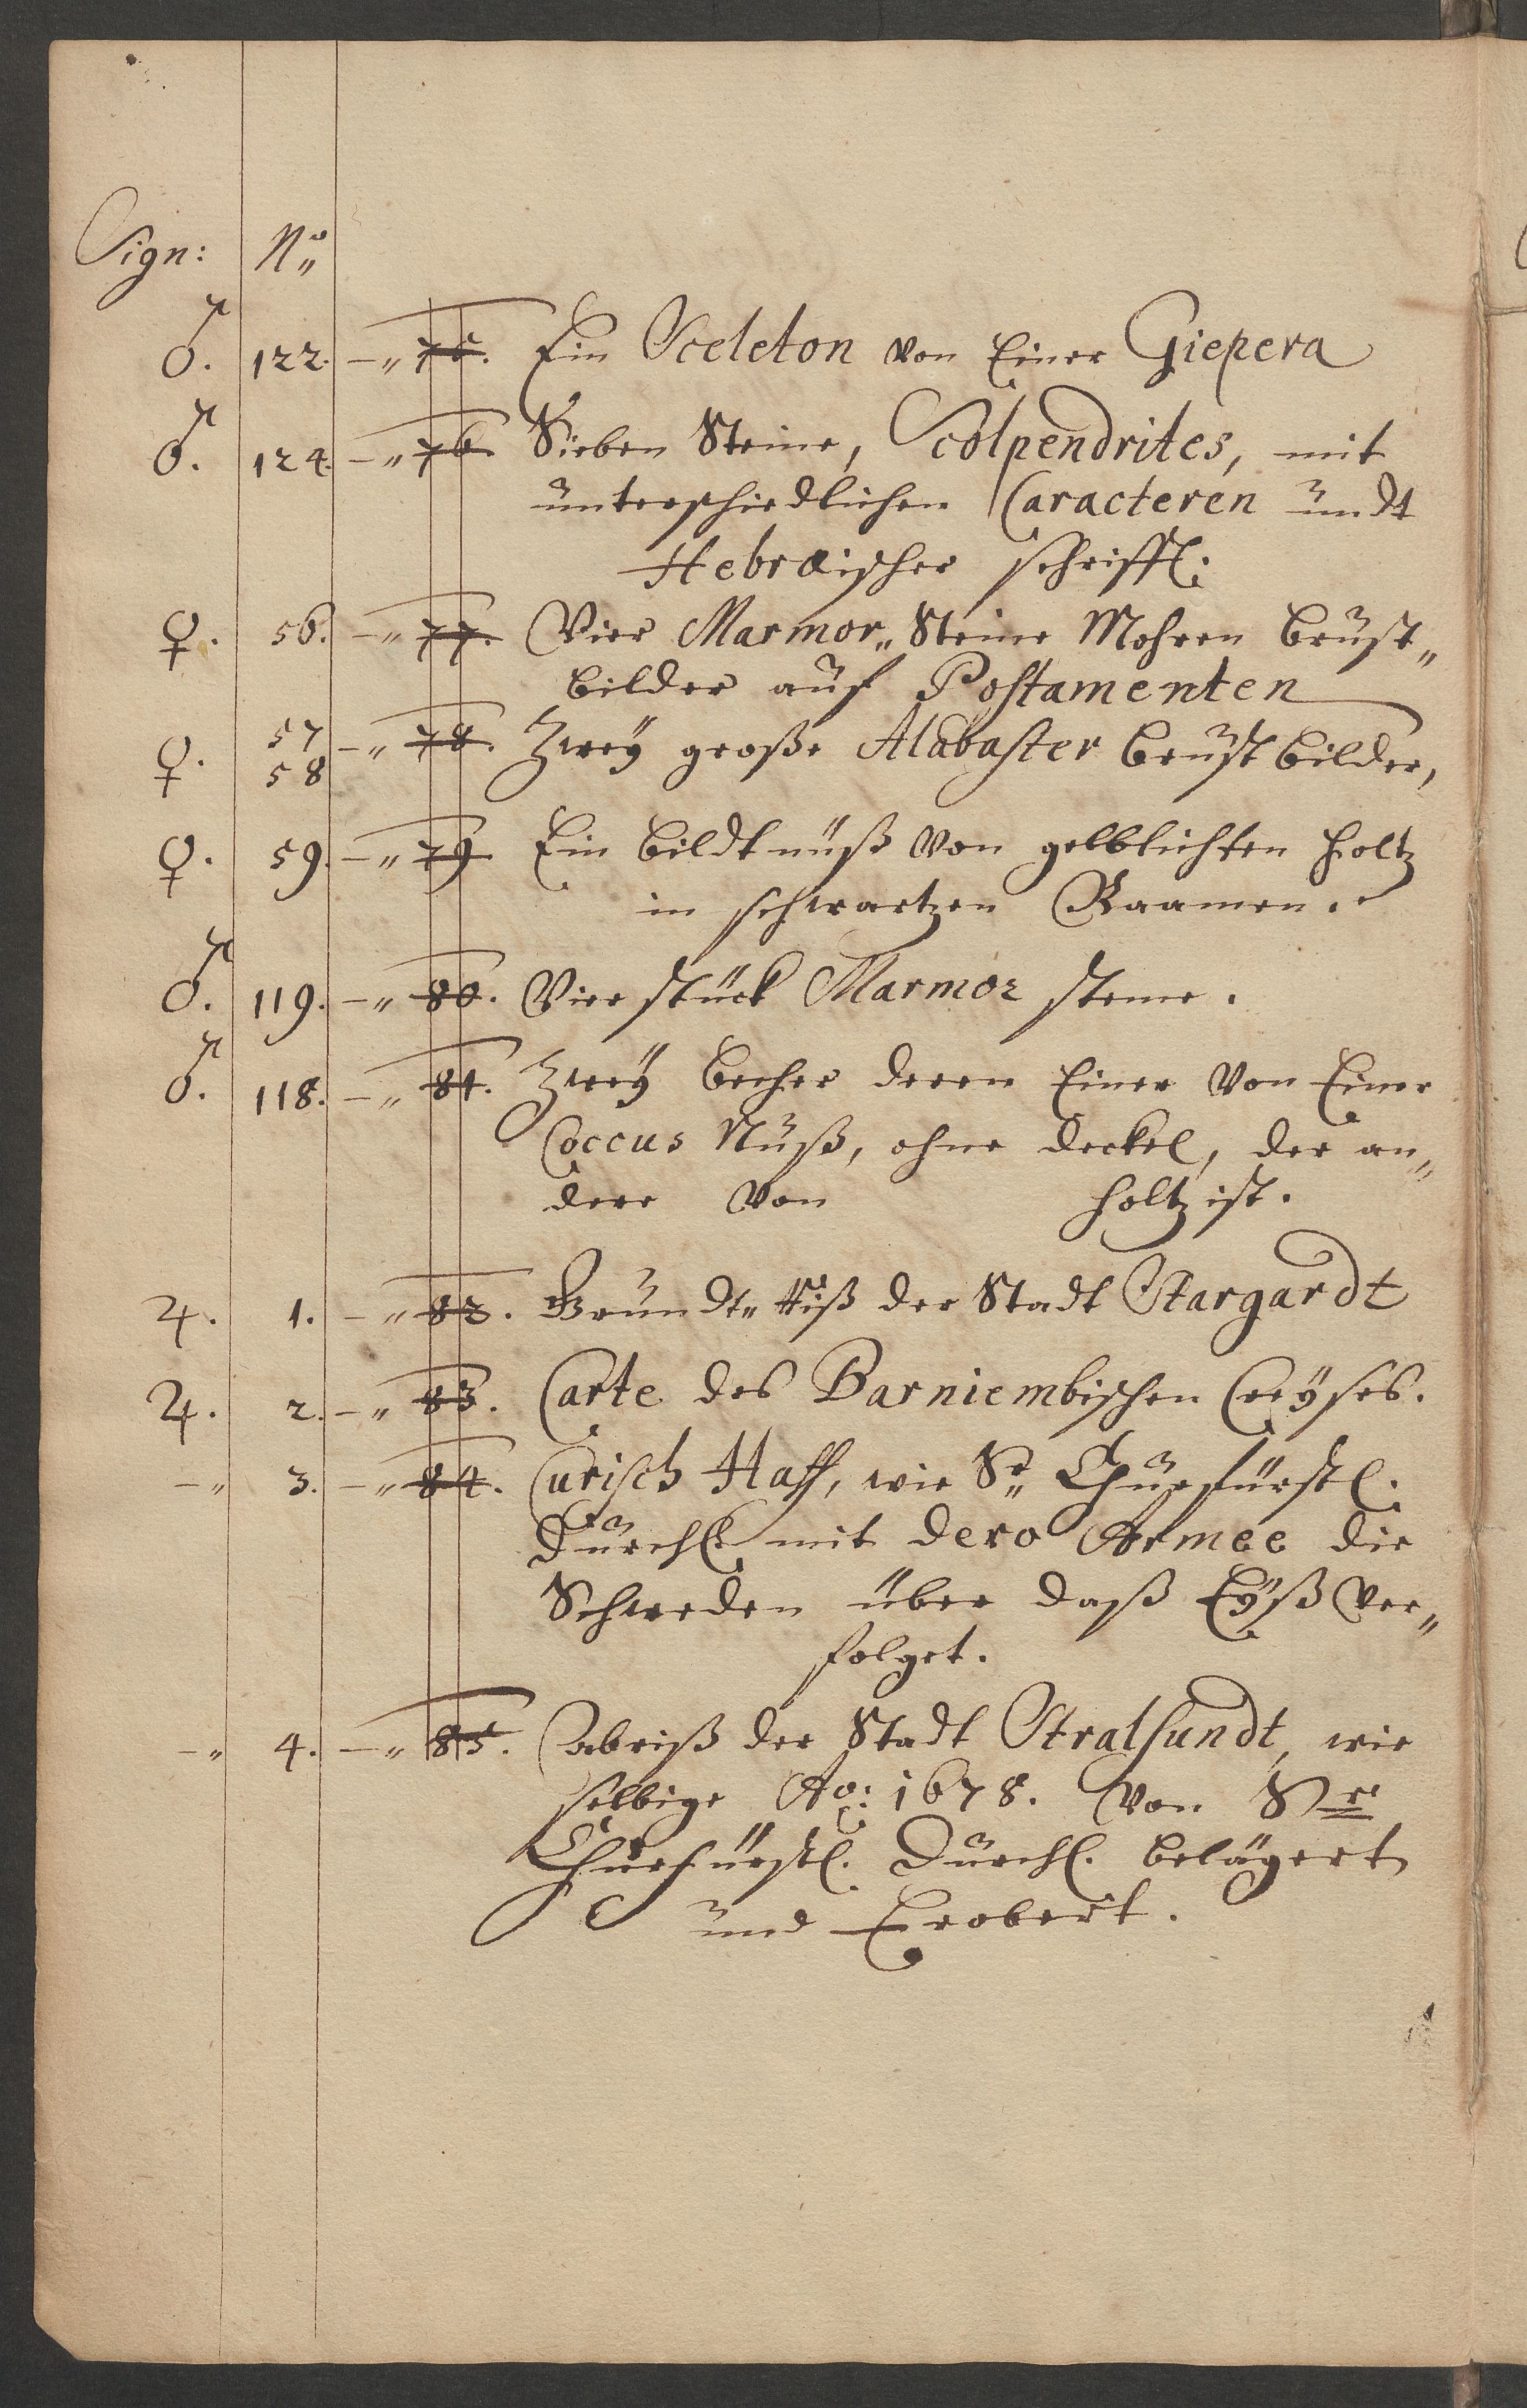 Sign: No
♂. 122. -„ 75. Ein Sceleton von Einer Giepera
♂. 124. -„ 76. Sieben Steine, Scolpendrites, mit
unterschiedlichen Caracteren undt
Hebraischer schrifft:
♀. 56. -„ 77. Vier Marmor„ Steine Mohren brust„
bilder auf Postamenten
♀. 57 58 -„ 78. Zweÿ große Alabaster brust bilder,
♀. 59. -„ 79 Ein bildtnüß von gelblichten holtz
in schwartzen Raamen.
♂. 119. -„ 80. Vier stück Marmor steine.
♂. 118. -„ 81. Zweÿ becher deren Einer von Einer
Coccus Nuß, ohne deckel, der an„
dere von holtz ist.
♃. 1. -„ 82. Grundt„ Riß der Stadt Stargardt
♃. 2. -„ 83. Carte des Barniembischen Creÿses.
-„ 3. -„ 84. Curisch Haff, wie Sr. Churfürstl.
Durchl. mit dero Armee die
Schweden über daß Eÿß ver„
folget.
-„ 4. -„ 85. Abriß der Stadt Stralsundt, wie
selbige Ao: 1678. von Sr
Churfürstl. Durchl. belägert
und Erobert.